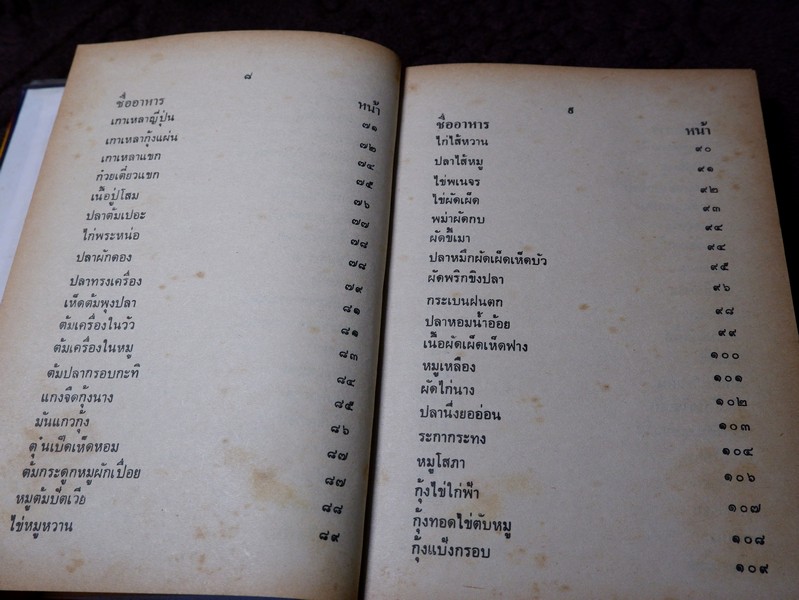 ๘
ชื่ออาหาร หน้า
เกาเหลาญี่ปุ่น ๗๑
เกาเหลากุ้งแผ่น ๗๒
เกาเหลาแขก ๗๔
ก๋วยเตี๋ยวแขก ๗๕
เนื้อปูโสม ๗๖
ปลาต้มเปอะ ๗๗
ไก่พระหน่อ ๗๘
ปลาผักดอง ๗๘
ปลาทรงเครื่อง ๗๙
เห็ดต้มพุงปลา ๘๑
ต้มเครื่องในวัว ๘๑
ต้มเครื่องในหมู ๘๓
ต้มปลากรอบกะทิ ๘๔
แกงจืดกุ้งนาง ๘๕
มันแกวกุ้ง ๘๖
ตุ๋นเป็ดเห็ดหอม ๘๗
ต้มกระดูกหมูผักเปื่อย ๘๗
หมูต้มปัตเวีย ๘๘
ไข่หมูหวาน ๘๙
๙
ชื่ออาหาร หน้า
ไก่ไส้หวาน ๙๐
ปลาไส้หมู ๙๑
ไข่พเนจร ๙๒
ไข่ผัดเผ็ด ๙๓
พม่าผัดกบ ๙๔
ผัดขี้เมา ๙๔
ปลาหมึกผัดเผ็ดเห็ดบัว ๙๕
ผัดพริกขิงปลา ๙๖
กระเบนฝนตก ๙๘
ปลาหอมน้ำอ้อย ๙๙
เนื้อผัดเผ็ดเห็ดฟาง ๑๐๐
หมูเหลือง ๑๐๑
ผัดไก่นาง ๑๐๒
ปลานึ่งยออ่อน ๑๐๓
ระกากระทง ๑๐๔
หมูโสภา ๑๐๖
กุ้งไข่ไก่ฟ้า ๑๐๗
กุ้งทอดไข่ตับหมู ๑๐๘
กุ้งแป้งกรอบ ๑๐๙